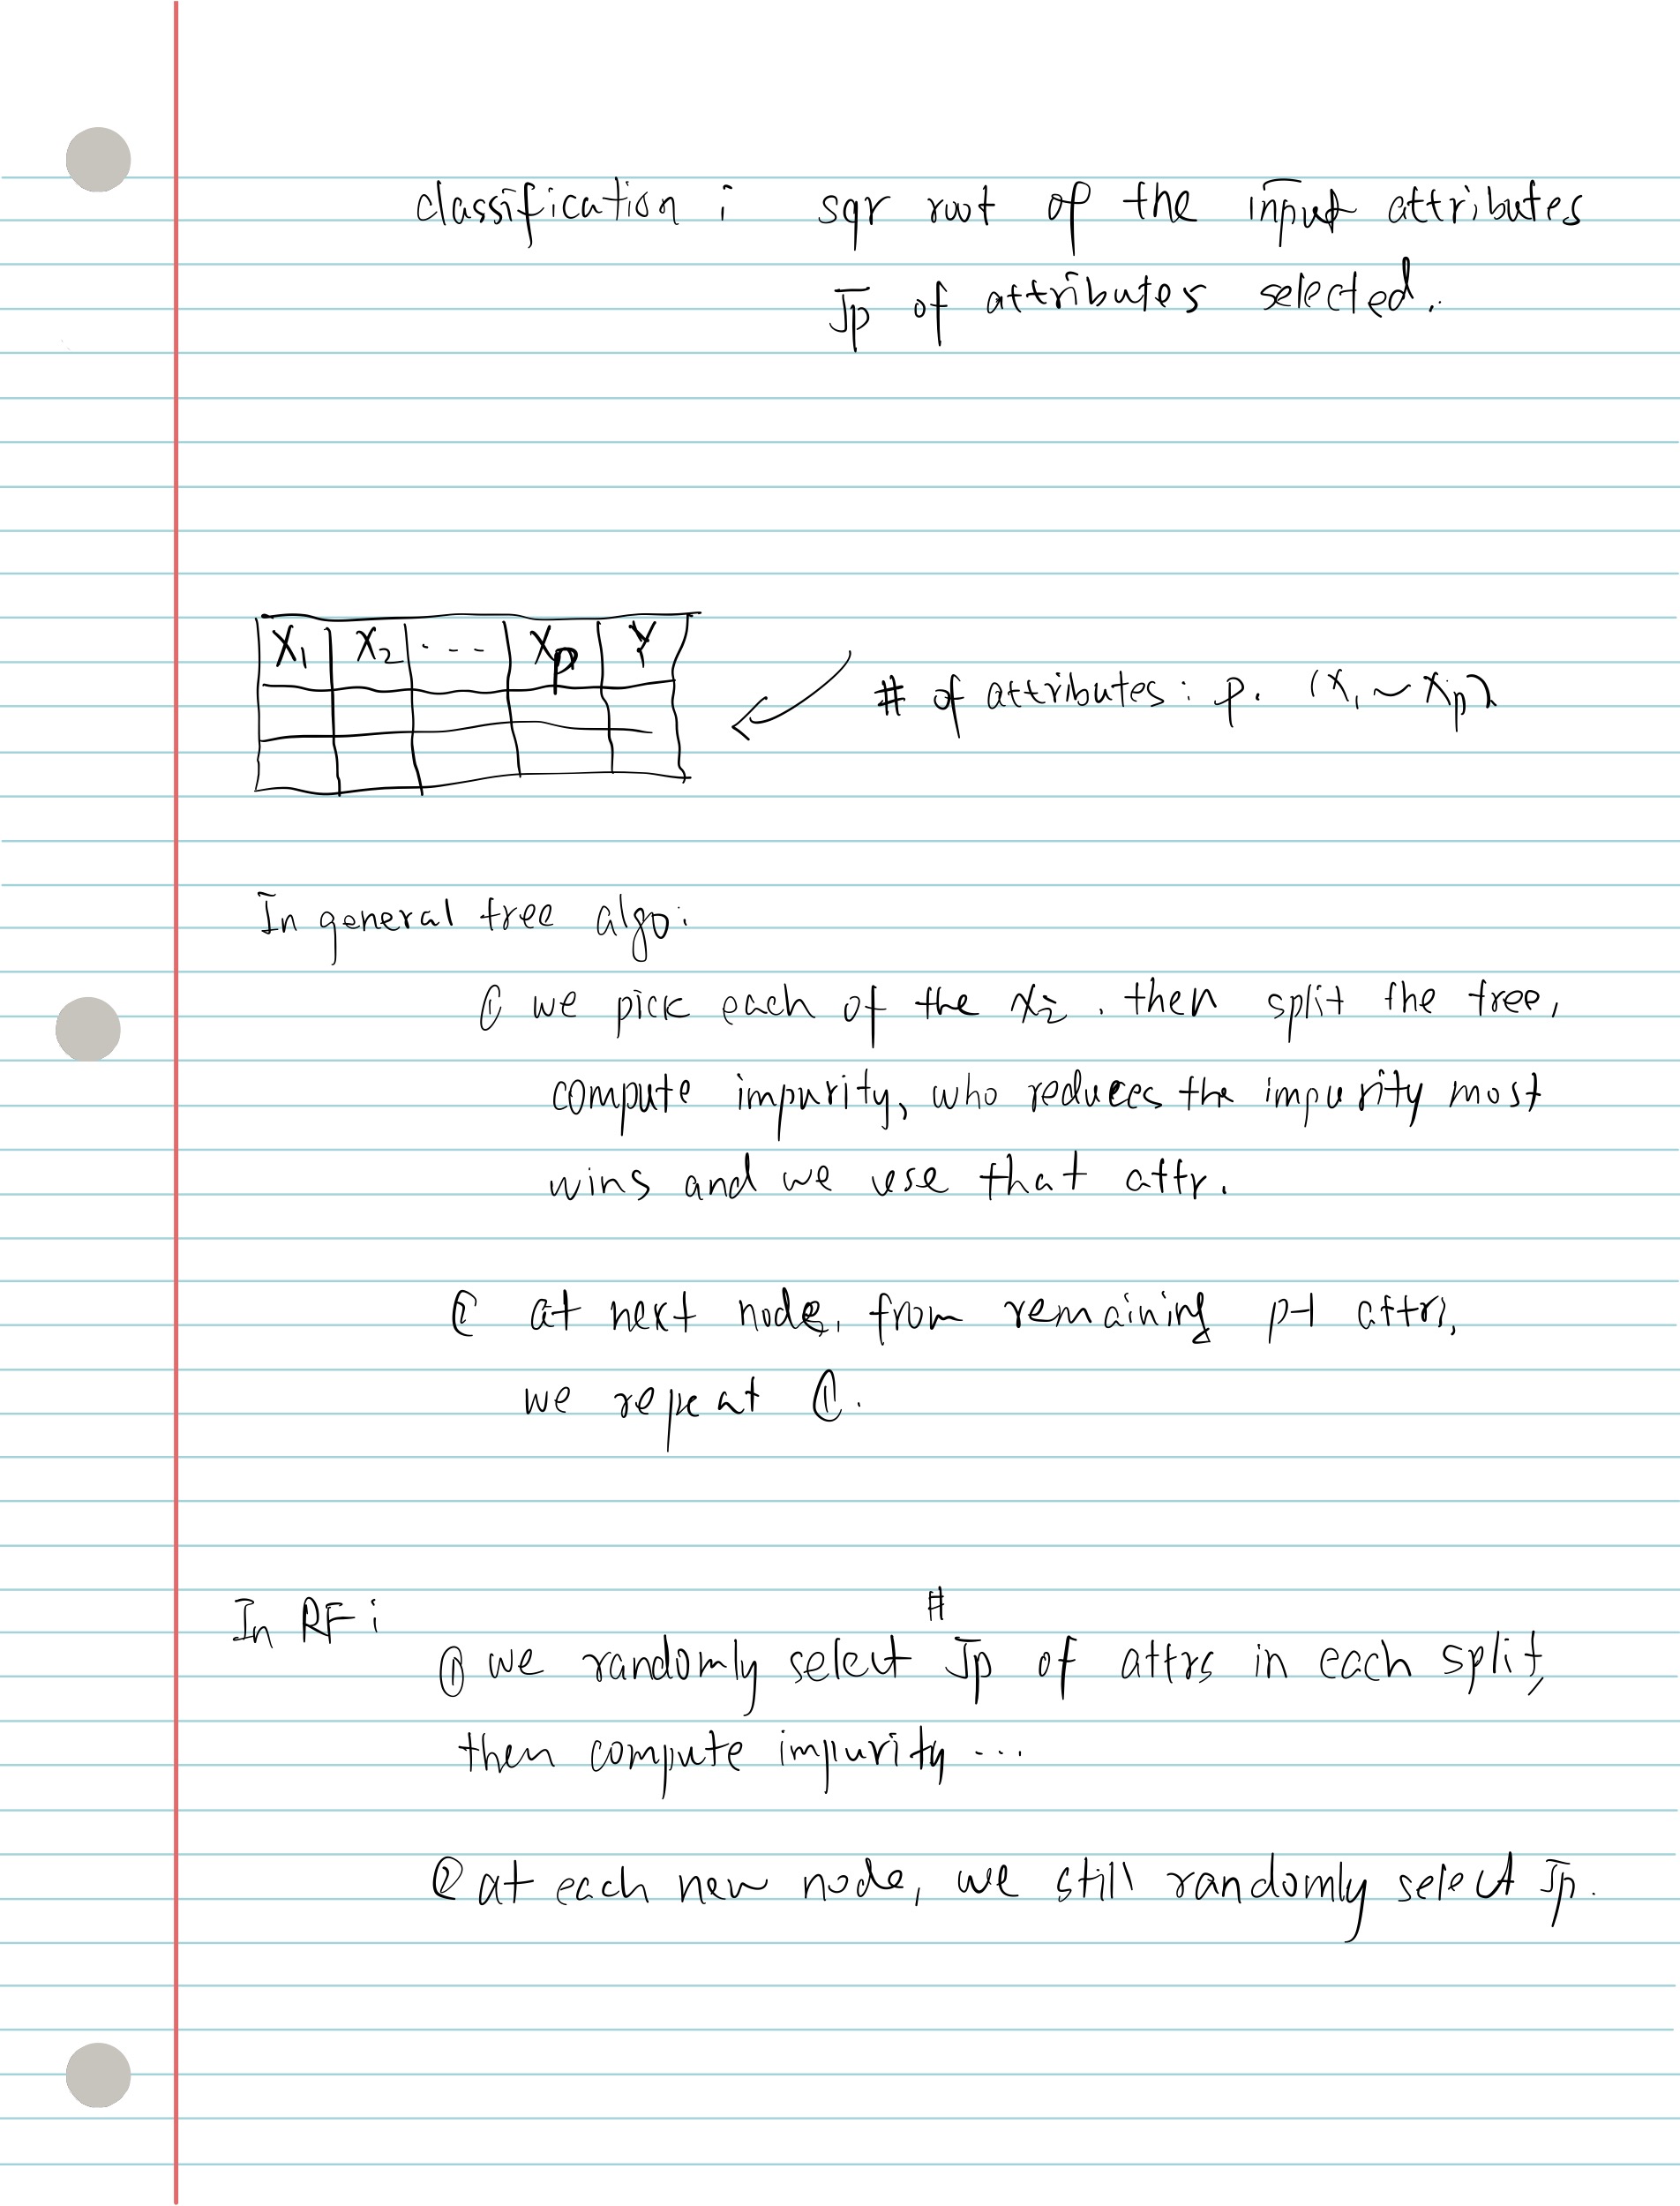 classification : sqr root of the input attributes
√p of attributes selected.
X1 X2 ... Xp Y
# of attributes : p. (X1 ~ Xp)
In general tree algo:
① we pick each of the Xi . then split the tree,
compute impurity, who reduces the impurity most
wins and we use that attr.
② at next node, from remaining p-1 attr,
we repeat ①.
In RF :
#
① we randomly select √p of attrs in each split,
then compute impurity ...
② at each new node, we still randomly select √p.